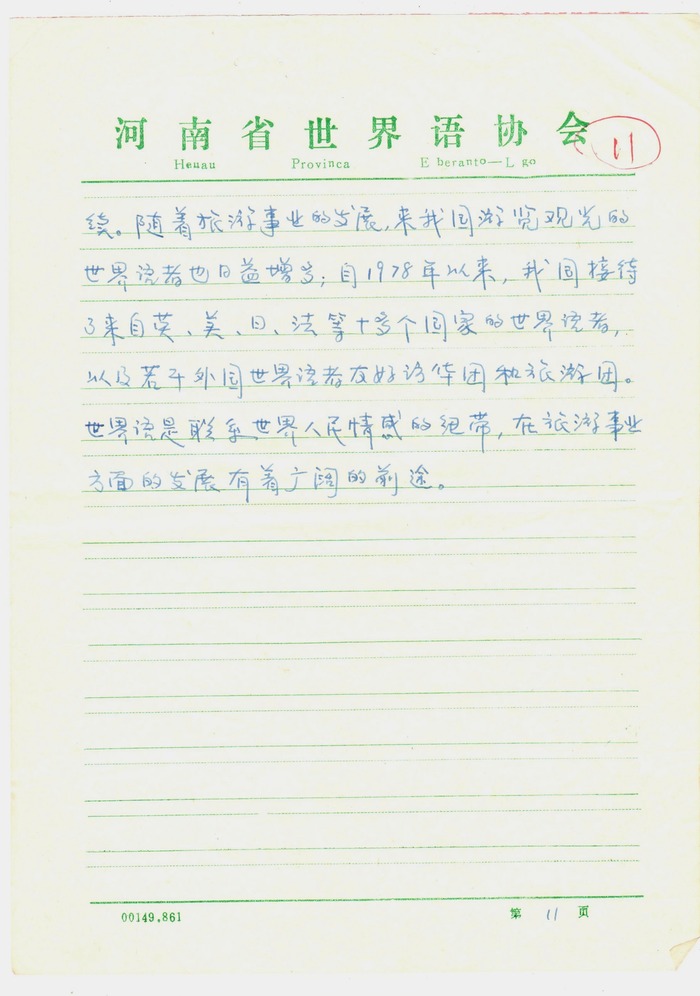 河南省世界语协会
Heuau Provinca E beranto—L go
11
续。随着旅游事业的发展,来我国游览观光的
世界语者也日益增多;自1978年以来,我国接待
了来自英、美、日、法等十多个国家的世界语者,
以及若干外国世界语者友好访华团和旅游团。
世界语是联系世界人民情感的纽带,在旅游事业
方面的发展有着广阔的前途。
00149.861 第 11 页